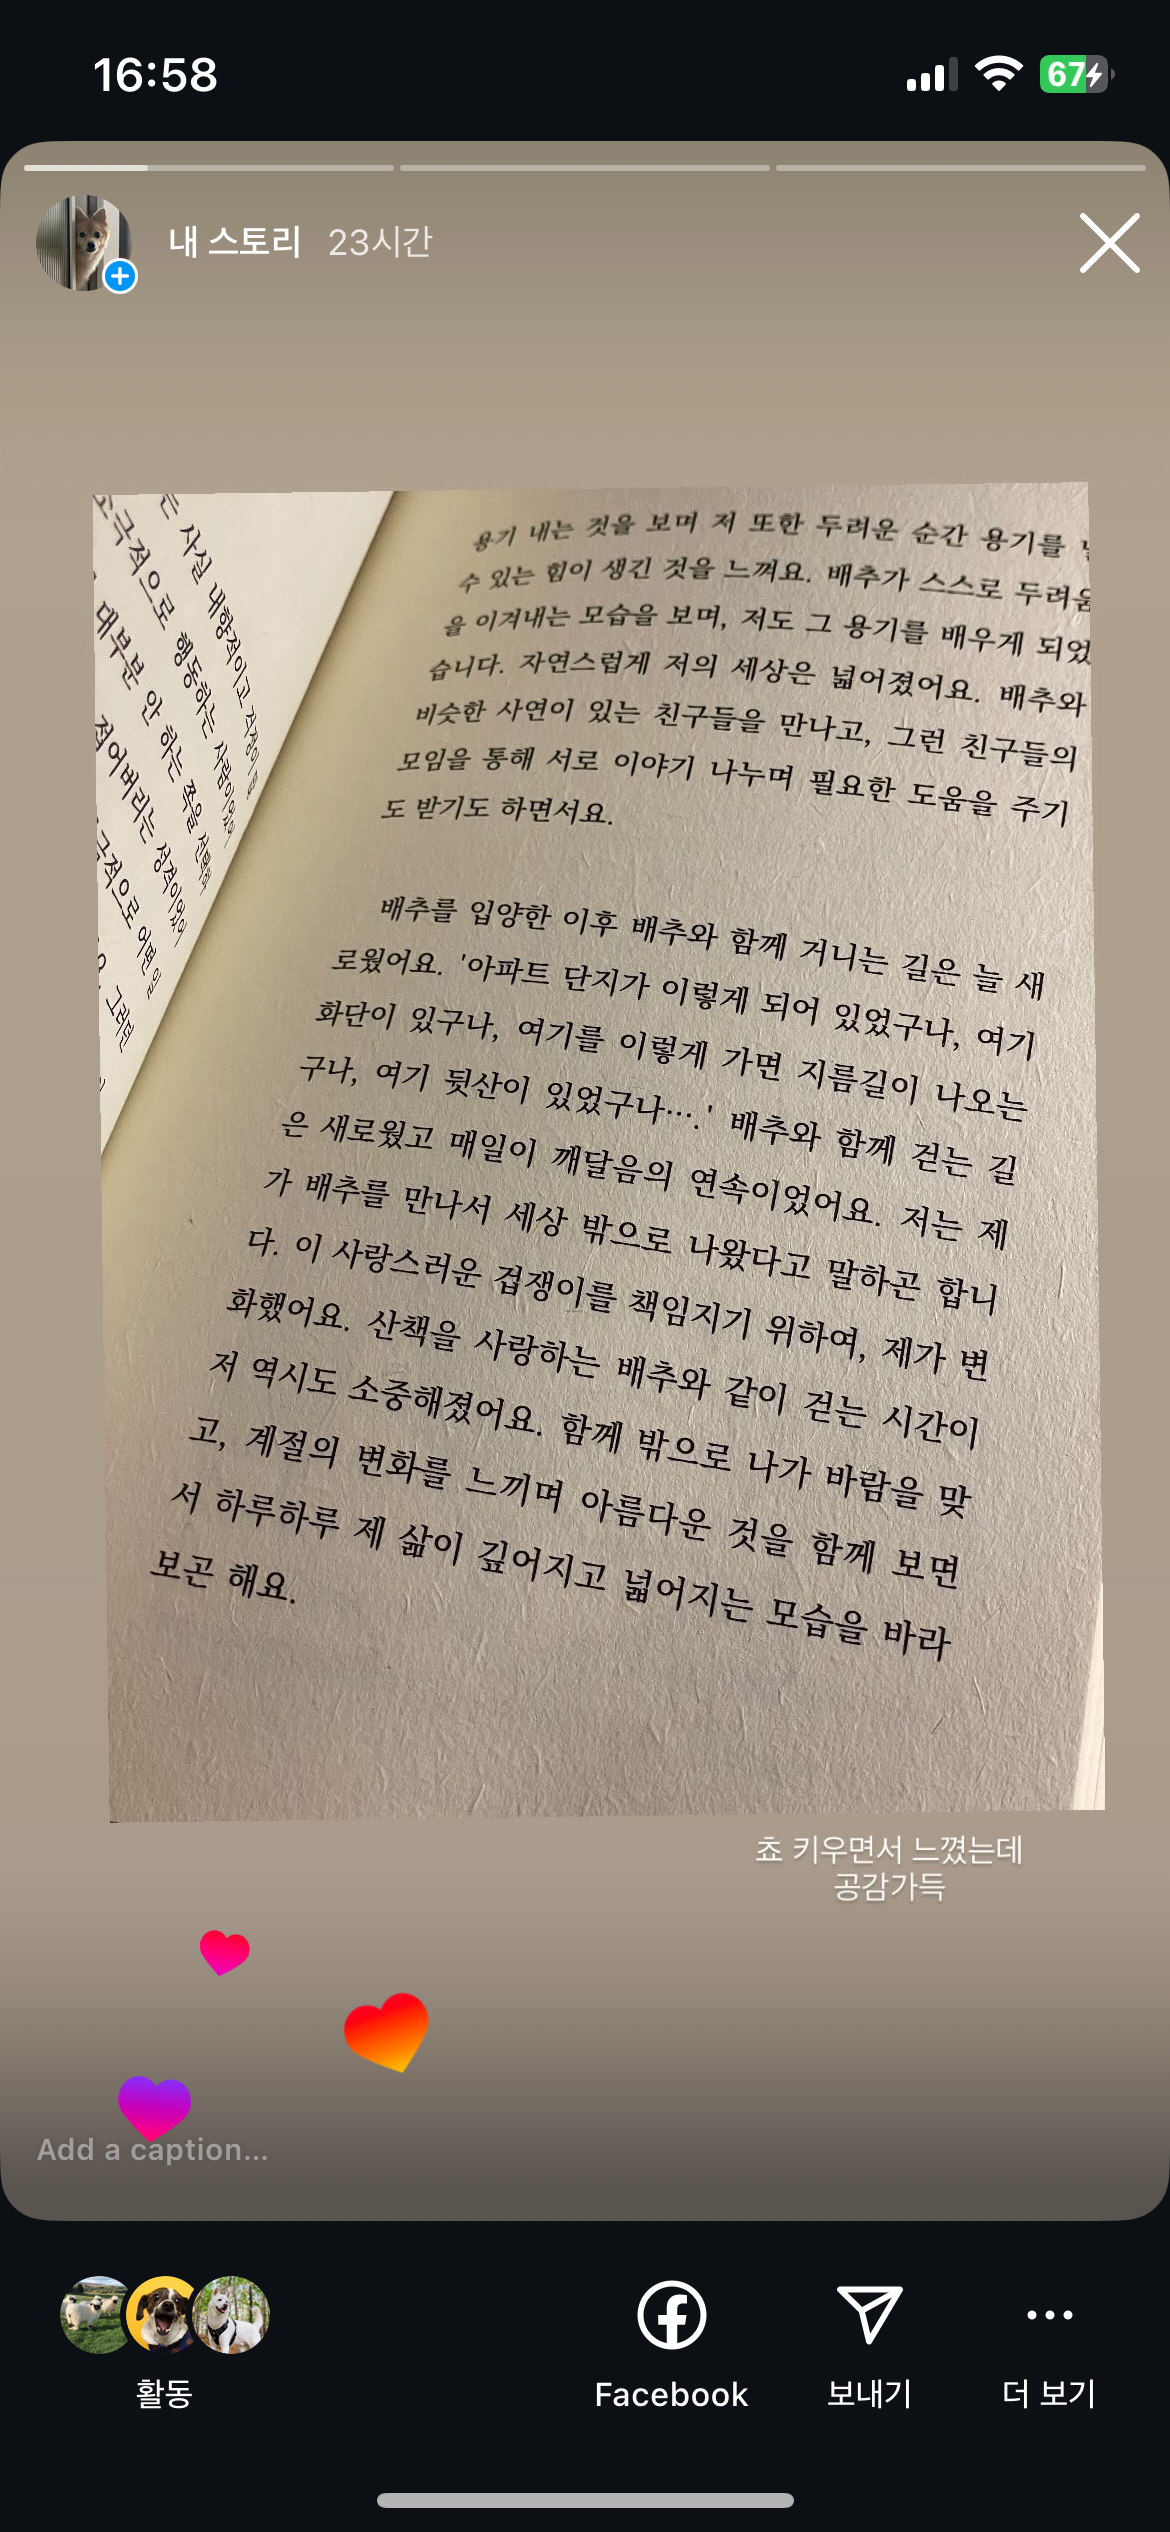 16:58
67
내 스토리 23시간
용기 내는 것을 보며 저 또한 두려운 순간 용기를
수 있는 힘이 생긴 것을 느껴요. 배추가 스스로 두려움
을 이겨내는 모습을 보며, 저도 그 용기를 배우게 되었
습니다. 자연스럽게 저의 세상은 넓어졌어요. 배추와
비슷한 사연이 있는 친구들을 만나고, 그런 친구들의
모임을 통해 서로 이야기 나누며 필요한 도움을 주기
도 받기도 하면서요.
배추를 입양한 이후 배추와 함께 거니는 길은 늘 새
로웠어요. '아파트 단지가 이렇게 되어 있었구나, 여기
화단이 있구나, 여기를 이렇게 가면 지름길이 나오는
구나, 여기 뒷산이 있었구나….' 배추와 함께 걷는 길
은 새로웠고 매일이 깨달음의 연속이었어요. 저는 제
가 배추를 만나서 세상 밖으로 나왔다고 말하곤 합니
다. 이 사랑스러운 겁쟁이를 책임지기 위하여, 제가 변
화했어요. 산책을 사랑하는 배추와 같이 걷는 시간이
저 역시도 소중해졌어요. 함께 밖으로 나가 바람을 맞
고, 계절의 변화를 느끼며 아름다운 것을 함께 보면
서 하루하루 제 삶이 깊어지고 넓어지는 모습을 바라
보곤 해요.
는 사실 내향적이고
소극적으로 행동하는 사람이었
대부분 안 하는 쪽을 선택
접어버리는 성격이었
극적으로 어떤 일
그러던
쵸 키우면서 느꼈는데
공감가득
Add a caption...
활동
Facebook
보내기
더 보기